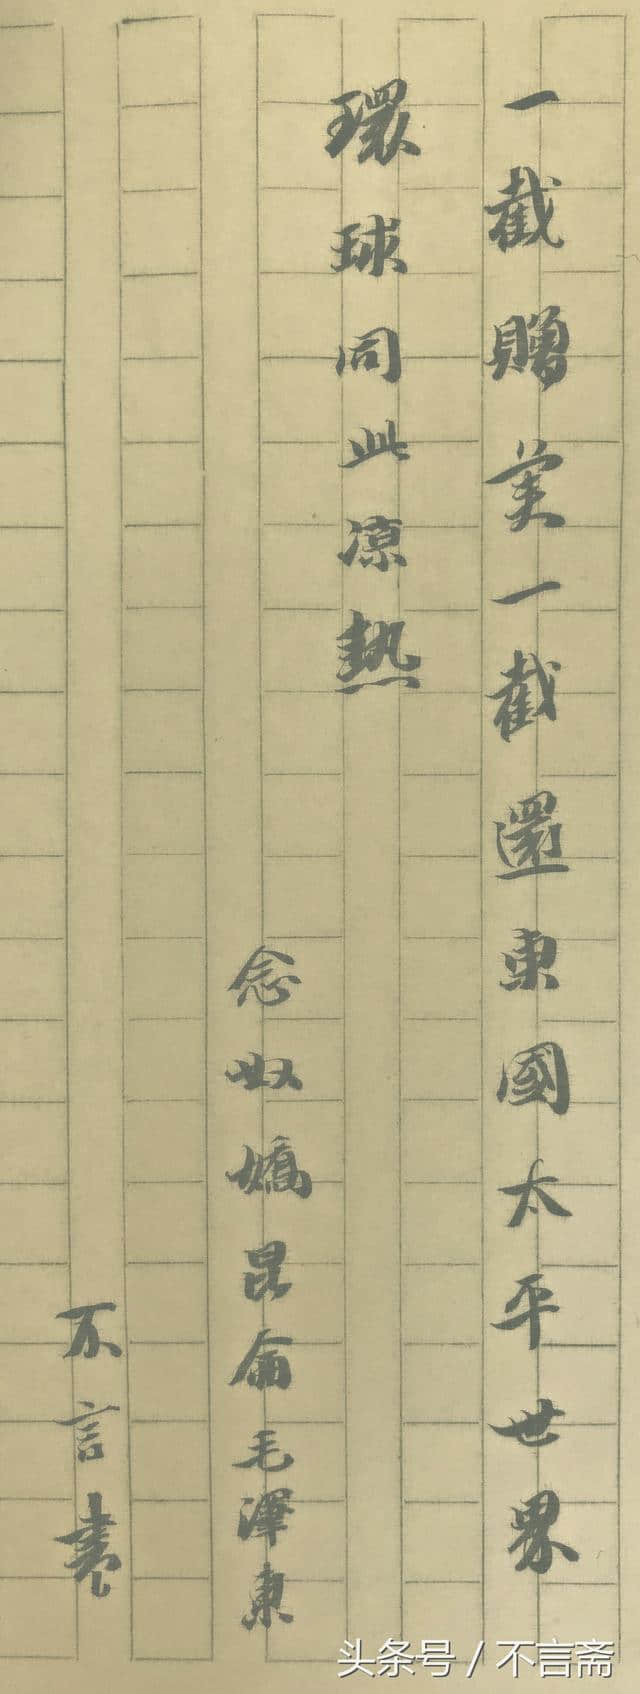 一截贈美一截還東國太平世界
環球同此凉熱
念奴嬌昆侖毛澤東
不言書
头条号 / 不言斋